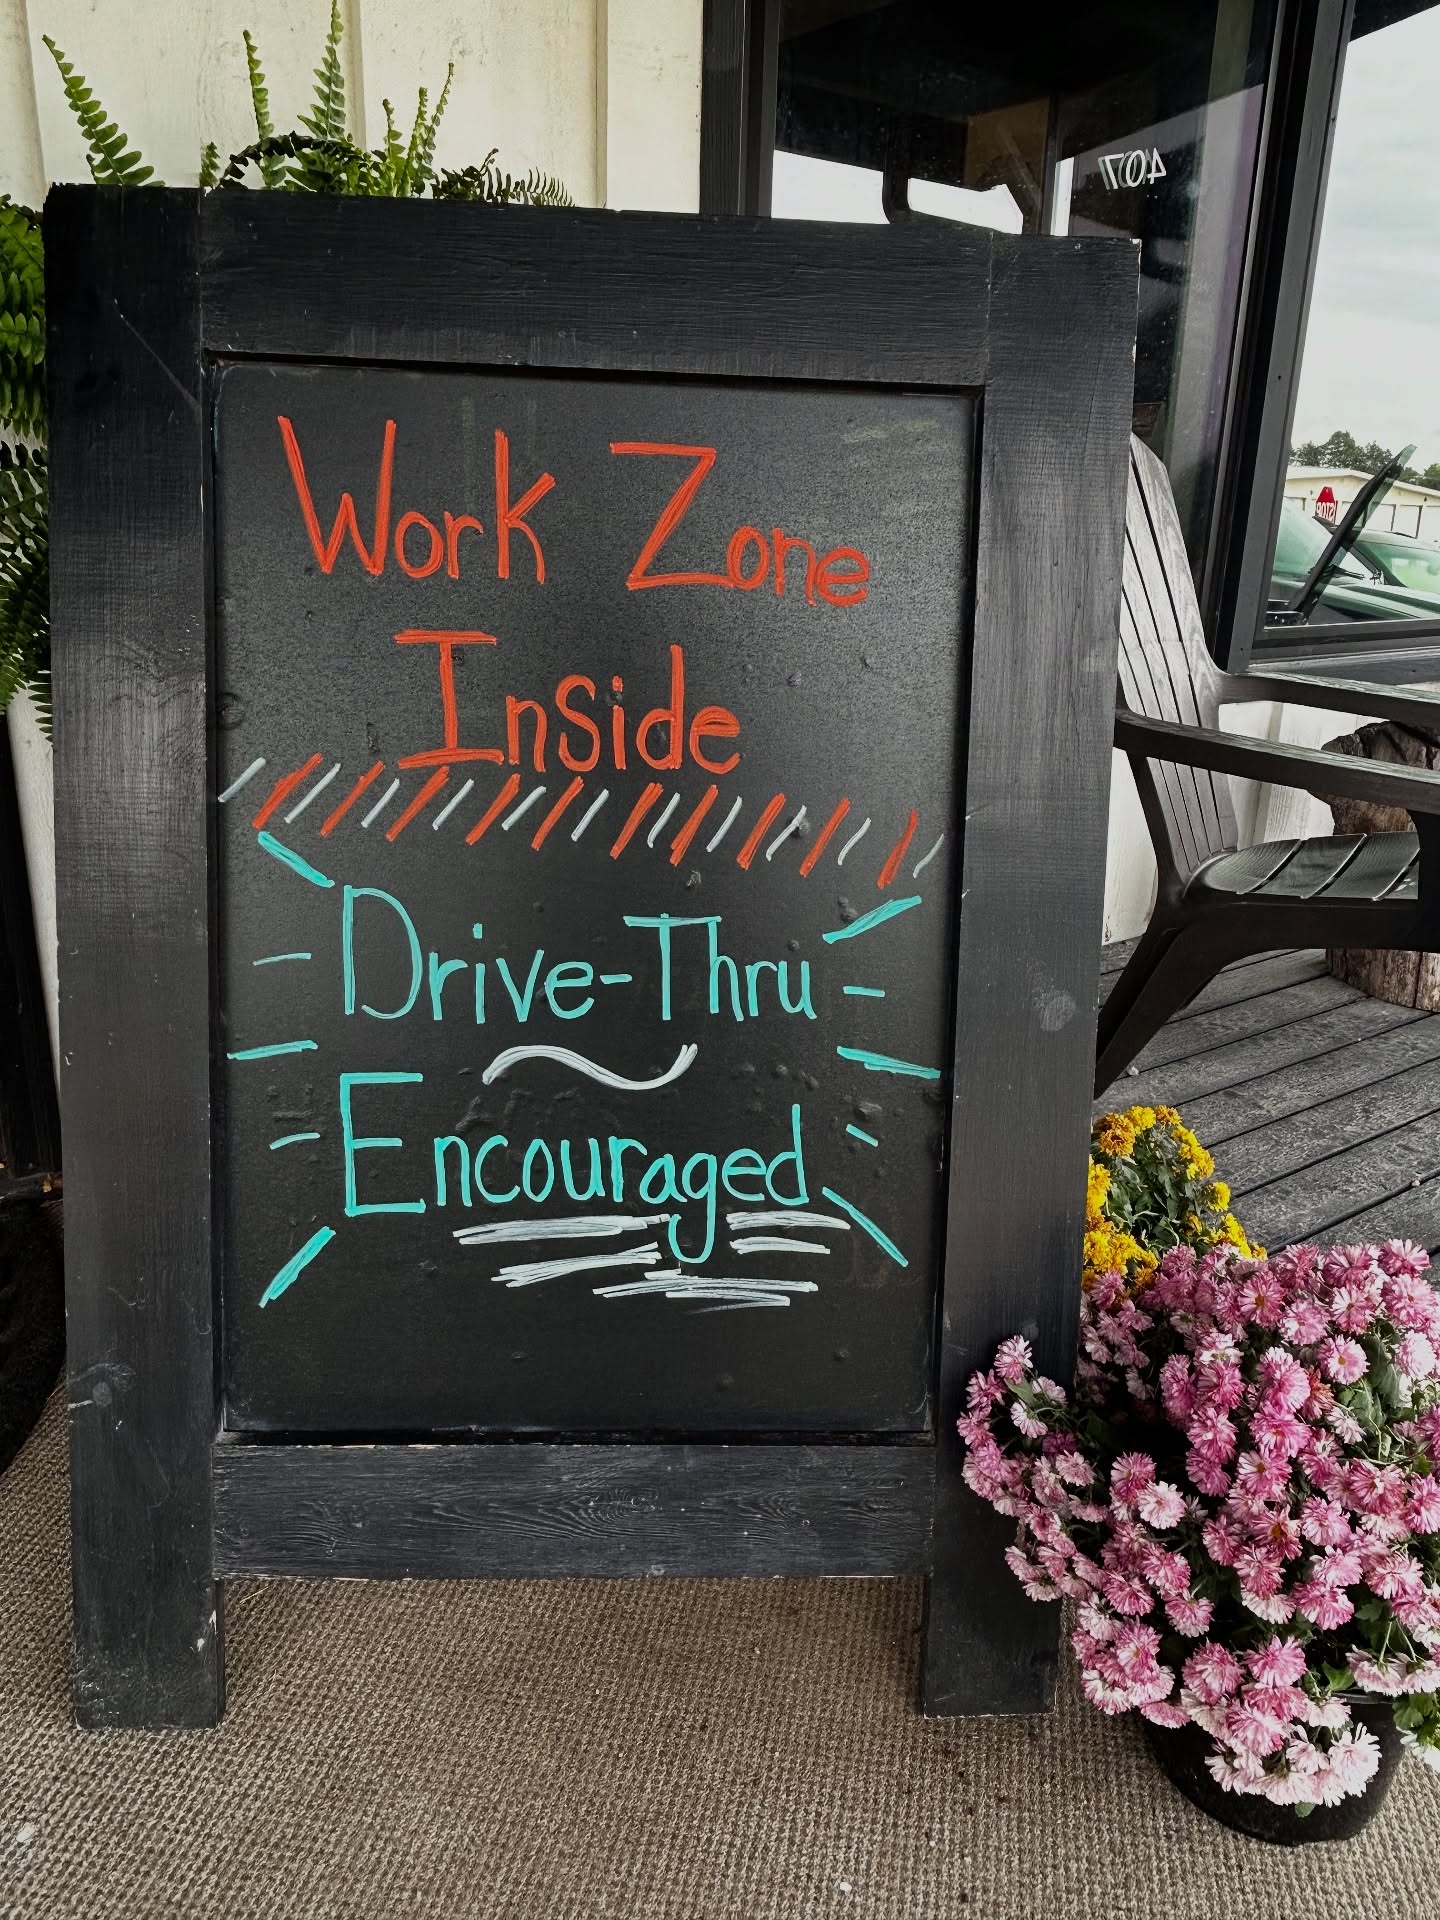 407
Work Zone
Inside
STOP
Drive-Thru
Encouraged